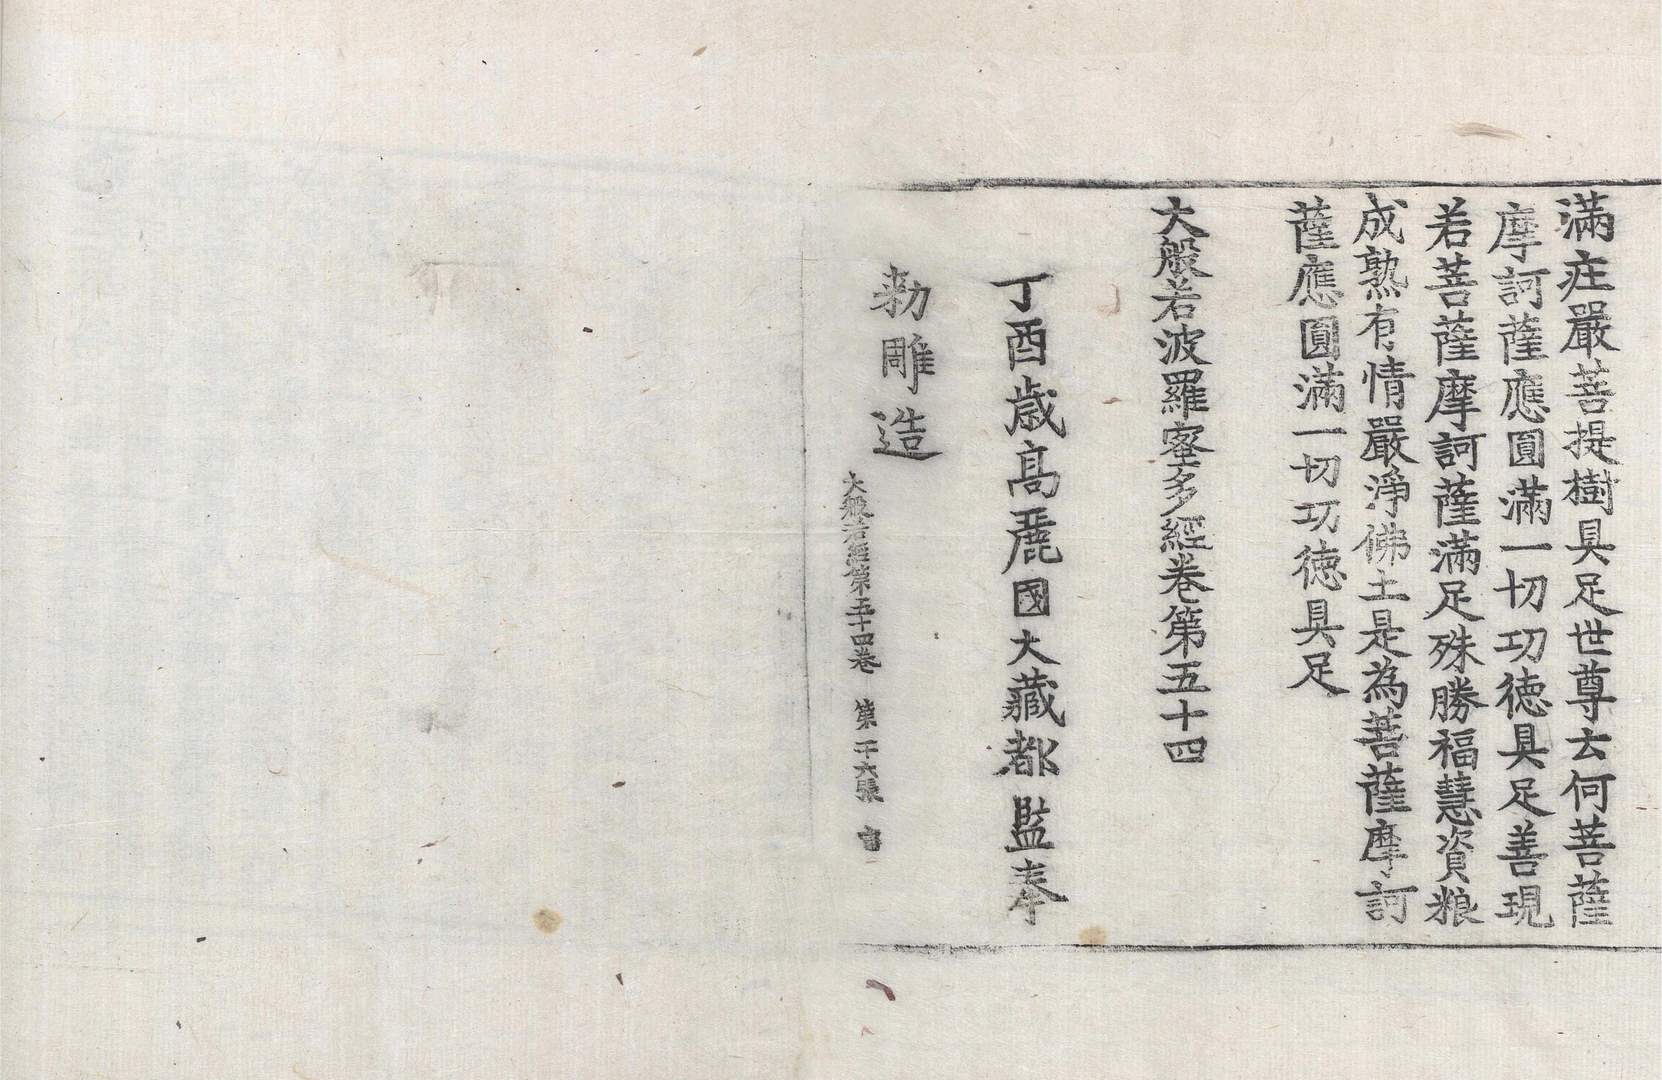 滿莊嚴菩提樹具足世尊云何菩薩
摩訶薩應圓滿一切功德具足善現
若菩薩摩訶薩滿足殊勝福慧資粮
成熟有情嚴淨佛土是為菩薩摩訶
薩應圓滿一切功德具足
大般若波羅蜜多經卷第五十四
丁酉歲高麗國大藏都監奉
勑雕造
大般若經第五十四卷 第二十六張